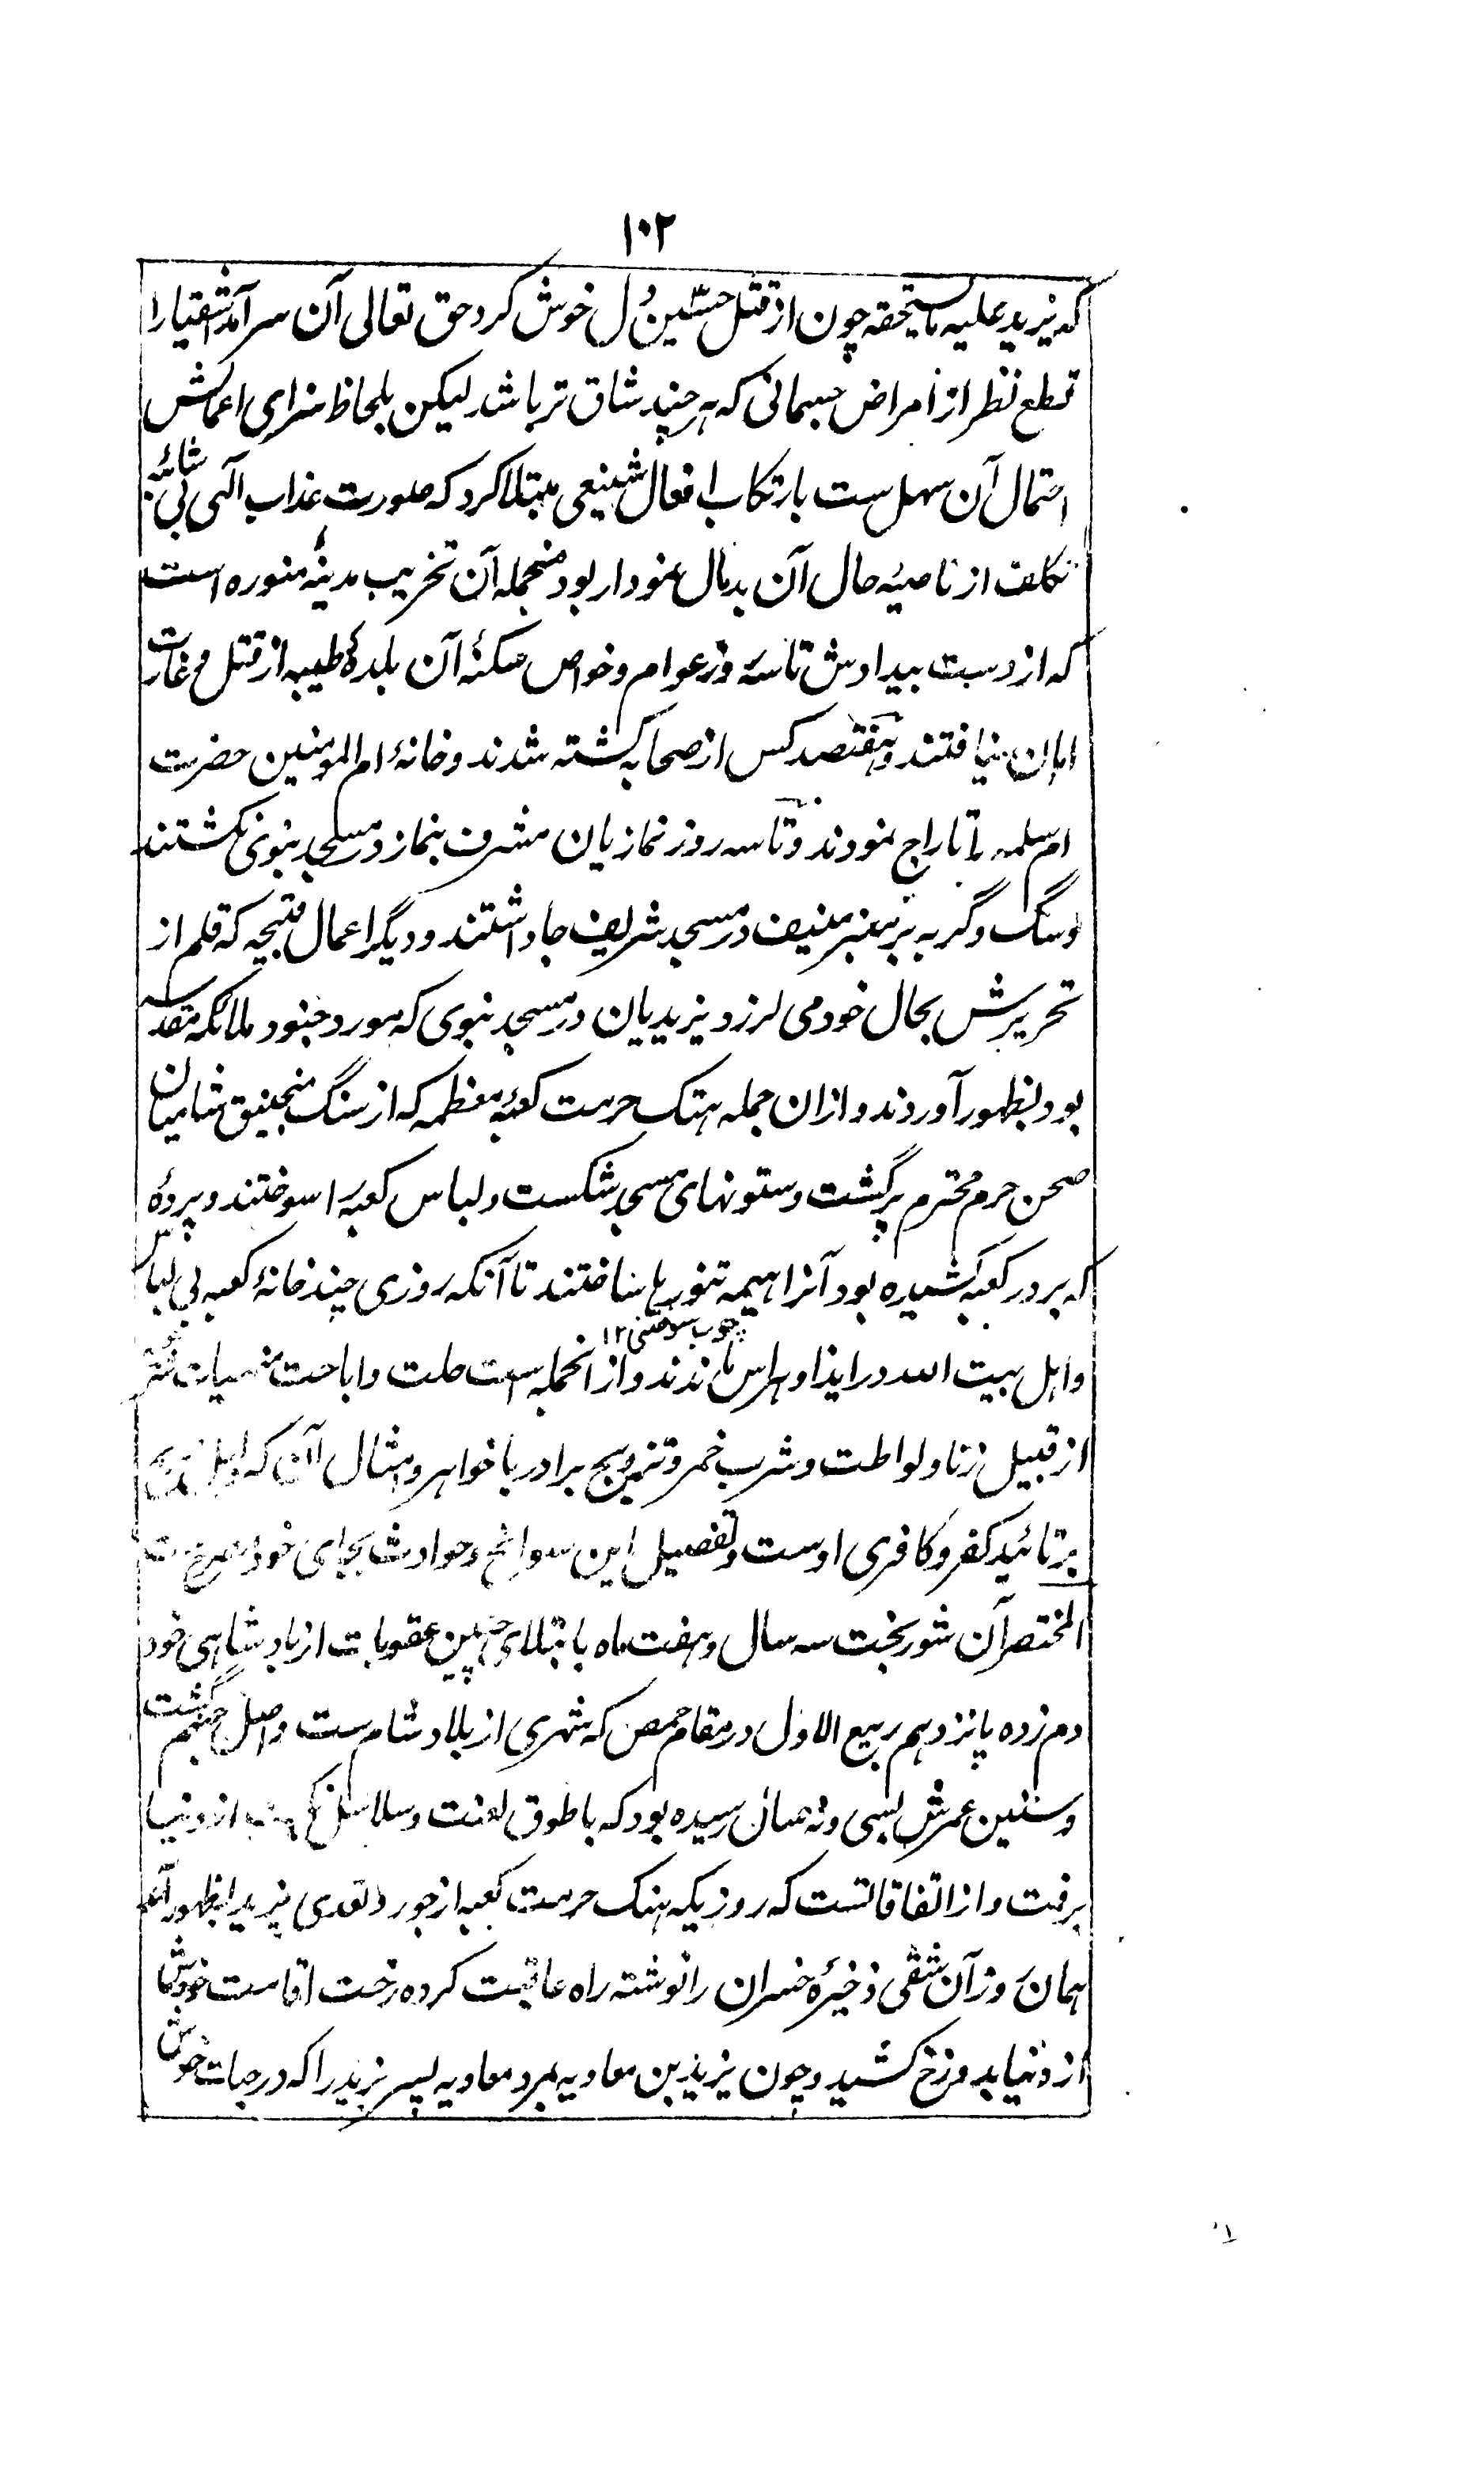 ۱۰۲
که یزید علیه ما یستحقه چون از قتل حسین دل خوش کرد حق تعالی آن سرآمد اشقیا را
قطع نظر از امراض جسمانی که هر چند شاق تر باشد لیکن بلحاظ سزای اعمالش
احتمال آن سهل ست بارتکاب افعال شنیعی مبتلا کرد که صورت عذاب الهی بی شائبه
تکلف از ناصیۀ حال آن بدمال نمودار بود منجمله آن تخریب مدینۀ منوره است
که از دست بیدادش تا سه روز عوام و خواص سکنۀ آن بلدۀ طیبه از قتل و غارت
امان نیافتند و هفتصد کس از صحابه کشته شدند و خانۀ ام المومنین حضرت
ام سلمه را تاراج نمودند و تا سه روز نمازیان مشرف بنماز در مسجد نبوی نگشتند
و سگ و گربه بر منبر منیف در مسجد شریف جا داشتند و دیگر اعمال قبیحه که قلم از
تحریرش بحال خود می لرزد یزیدیان در مسجد نبوی که مورد جنود ملائکه مقدسه
بود بظهور آوردند و ازان جمله هتک حرمت کعبۀ معظمه که از سنگ منجنیق شامیان
صحن حرم محترم پر گشت و ستونهای مسجد بشکست و لباس کعبه را سوختند و پردۀ
که بر در کعبه کشیده بود آنرا هیمه تنورها ساختند تا آنکه روزی چند خانۀ کعبه بی لباس
چوب سوختنی ۱۲
و اهل بیت الله در ایذا و هراس ماندند و از انجمله است حلت و اباحت منهیات
از قبیل زنا و لواطت و شرب خمر و تزویج برادر با خواهر و امثال آن که
بر تائید کفر و کافری اوست و تفصیل این سوانح و حوادث بجای خود
المختصر آن شوربخت سه سال و هفت ماه بابتلای چنین عقوبات از بادشاهی خود
دم زده پانزدهم ربیع الاول در مقام حمص که شهری از بلاد شام ست واصل جهنم گشت
و سنین عمرش بسی و نه سال رسیده بود که با طوق لعنت و سلاسل از دنیا
برفت و از اتفاقاتست که روزیکه هتک حرمت کعبه از جور و تعدی یزید بظهور آمد
همان روز آن شقی ذخیرۀ خسران را توشته راه عاقبت کرده رخت اقامت خودش
از دنیا بدوزخ کشید و چون یزید بن معاویه بمرد معاویه پسر یزید را که در حیات خودش